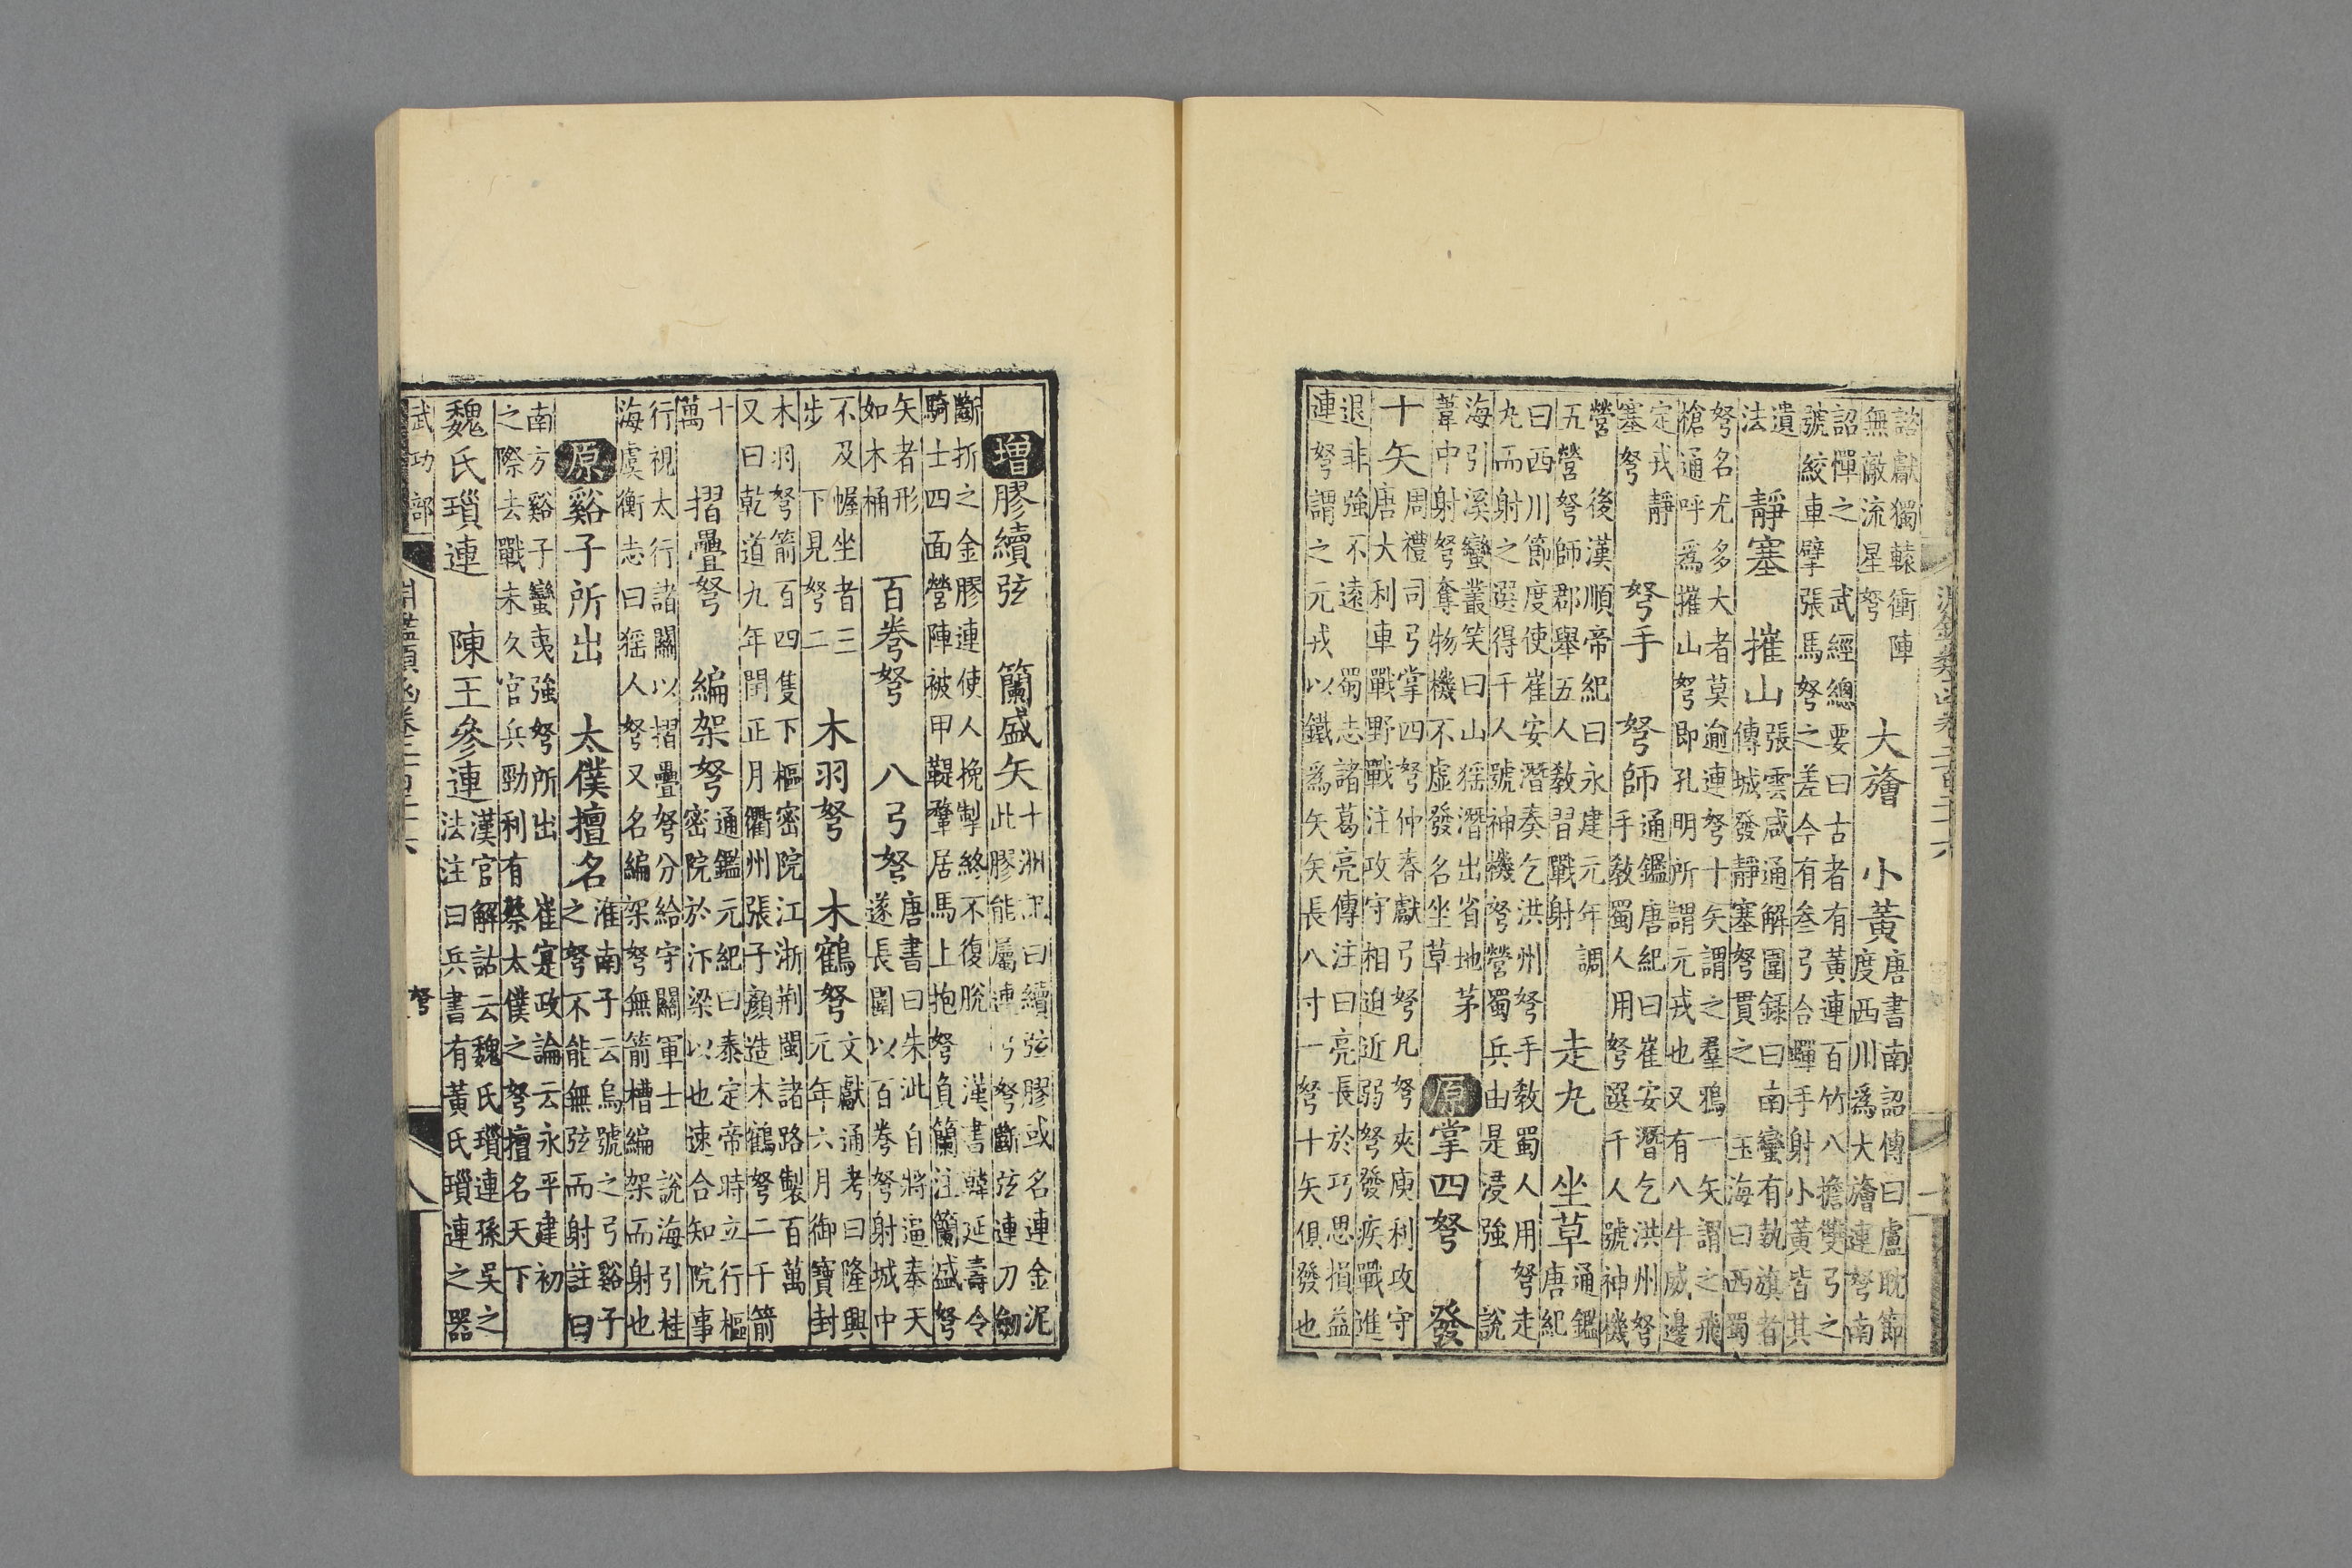 淵鑑類函卷二百二十六
諮獻獨轅衝陣
無敵流星弩
大旝 小黃
唐書南詔傳曰盧耽節
度西川爲大旝連弩南
詔憚之 武經總要曰古者有黃連百竹八擔雙弓之
號絞車擘張馬弩之差今有叁弓合蟬手射小黃皆其
遺
法
靜塞 摧山
張雲咸通解圍錄曰南蠻有執旗者
傳城發靜塞弩貫之 玉海曰西蜀
弩名尤多大者莫逾連弩十矢謂之羣鴉一矢謂之飛
槍通呼爲摧山弩即孔明所謂元戎也又有八牛威邊
定戎靜
塞弩
弩手 弩師
通鑑唐紀曰崔安潛乞洪州弩
手敎蜀人用弩選千人號神機
營 後漢順帝紀曰永建元年調
五營弩師郡舉五人敎習戰射
走丸 坐草
通鑑
唐紀
曰西川節度使崔安潛奏乞洪州弩手敎蜀人用弩走
丸而射之選得千人號神機弩營蜀兵由是浸強 說
海引溪蠻叢笑曰山猺潛出省地茅
葦中射弩奪物機不虛發名坐草
原掌四弩 發
十矢
周禮司弓掌四弩仲春獻弓弩凡弩夾庾利攻守
唐大利車戰野戰注攻守相迫近弱弩發疾戰進
退非強不遠 蜀志諸葛亮傳注曰亮長於巧思損益
連弩謂之元戎以鐵爲矢矢長八寸一弩十矢俱發也
增膠續弦 籣盛矢
十洲記曰續弦膠或名連金泥
此膠能屬連弓弩斷弦連刀劒
斷折之金膠連使人挽掣終不復脫 漢書韓延壽令
騎士四面營陣被甲鞮鞪居馬上抱弩負籣注籣盛弩
矢者形
如木桶
百弮弩 八弓弩
唐書曰朱泚自將逼奉天
遂長圍以百弮弩射城中
不及幄坐者三
步 下見弩二
木羽弩 木鶴弩
文獻通考曰隆興
元年六月御寶封
木羽弩箭百四隻下樞密院江浙荆閩諸路製百萬
又曰乾道九年閏正月衢州張子顏造木鶴弩二千箭
十
萬
摺疊弩 編架弩
通鑑元紀曰泰定帝時立行樞
密院於汴梁以也速合知院事
行視太行諸關以摺疊弩分給守關軍士 說海引桂
海虞衡志曰猺人弩又名編架弩無箭槽編架而射也
原谿子所出 太僕擅名
淮南子云烏號之弓谿子
之弩不能無弦而射註曰
南方谿子蠻夷強弩所出 崔寔政論云永平建初
之際去戰未久官兵勁利有蔡太僕之弩擅名天下
魏氏瑣連 陳王參連
漢官解詁云魏氏瑣連孫吳之
法注曰兵書有黃氏瑣連之器
武功部 淵鑑類函卷二百二十六 弩 八